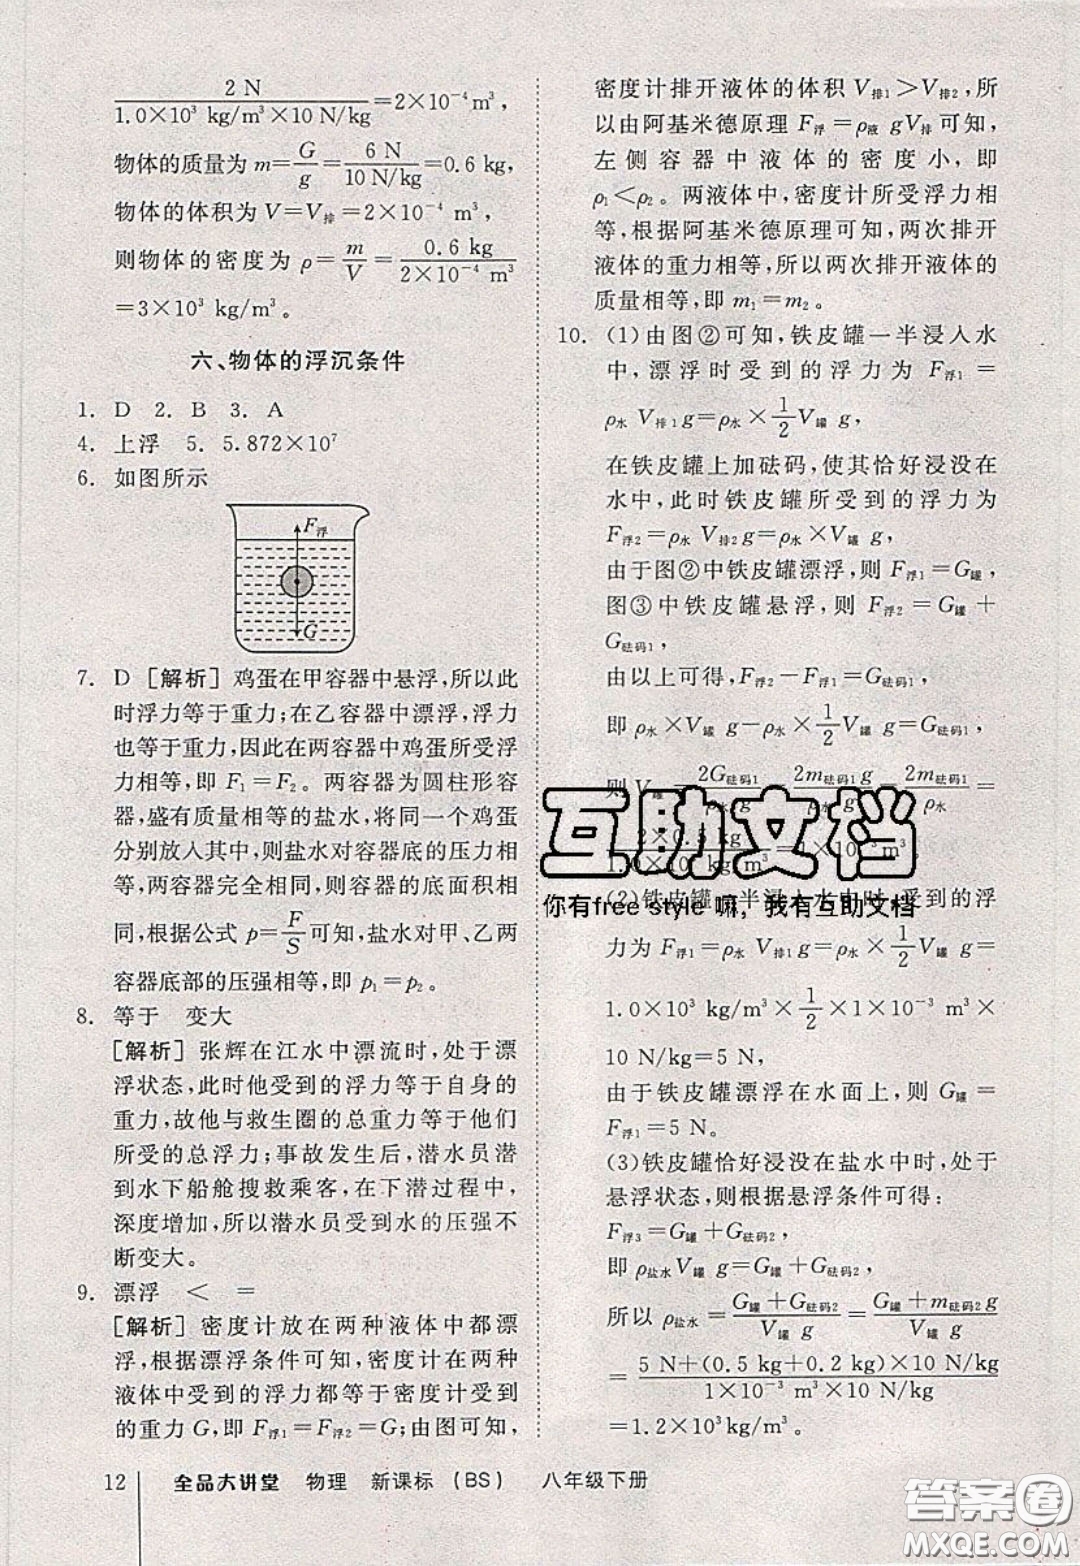 2 N
1.0×10³ kg/m³×10 N/kg =2×10⁻⁴ m³，
物体的质量为 m=G/g=6 N/10 N/kg=0.6 kg，
物体的体积为 V=V排=2×10⁻⁴ m³，
则物体的密度为 ρ=m/V=0.6 kg/2×10⁻⁴ m³
=3×10³ kg/m³。
六、物体的浮沉条件
1. D 2. B 3. A
4. 上浮 5. 5.872×10⁷
6. 如图所示
F浮
G
7. D [解析] 鸡蛋在甲容器中悬浮，所以此
时浮力等于重力；在乙容器中漂浮，浮力
也等于重力，因此在两容器中鸡蛋所受浮
力相等，即 F₁=F₂。两容器为圆柱形容
器，盛有质量相等的盐水，将同一个鸡蛋
分别放入其中，则盐水对容器底的压力相
等，两容器完全相同，则容器的底面积相
同，根据公式 p=F/S可知，盐水对甲、乙两
容器底部的压强相等，即 p₁=p₂。
8. 等于 变大
[解析] 张辉在江水中漂流时，处于漂
浮状态，此时他受到的浮力等于自身的
重力，故他与救生圈的总重力等于他们
所受的总浮力；事故发生后，潜水员潜
到水下船舱搜救乘客，在下潜过程中，
深度增加，所以潜水员受到水的压强不
断变大。
9. 漂浮 < =
[解析] 密度计放在两种液体中都漂
浮，根据漂浮条件可知，密度计在两种
液体中受到的浮力都等于密度计受到
的重力 G，即 F浮1=F浮2=G；由图可知，
密度计排开液体的体积 V排1>V排2，所
以由阿基米德原理 F浮=ρ液 gV排 可知，
左侧容器中液体的密度小，即
ρ₁<ρ₂。两液体中，密度计所受浮力相
等，根据阿基米德原理可知，两次排开
液体的重力相等，所以两次排开液体的
质量相等，即 m₁=m₂。
10. (1)由图②可知，铁皮罐一半浸入水
中，漂浮时受到的浮力为 F浮1=
ρ水 V排1g=ρ水×1/2V罐 g，
在铁皮罐上加砝码，使其恰好浸没在
水中，此时铁皮罐所受到的浮力为
F浮2=ρ水 V排2g=ρ水×V罐 g，
由于图②中铁皮罐漂浮，则 F浮1=G罐，
图③中铁皮罐悬浮，则 F浮2=G罐+
G砝码1，
由以上可得，F浮2－F浮1=G砝码1，
即 ρ水×V罐 g－ρ水×1/2V罐 g=G砝码1，
则 V罐=2G砝码1/ =2m砝码1g/ g=2m砝码1/ρ水=
2×0.5 kg/1.0×10³ kg/m³=1×10⁻³ m³。
(2)铁皮罐一半浸入水中时，受到的浮
力为 F浮1=ρ水 V排1g=ρ水×1/2V罐 g=
1.0×10³ kg/m³×1/2×1×10⁻³ m³×
10 N/kg=5 N，
由于铁皮罐漂浮在水面上，则 G罐=
F浮1=5 N。
(3)铁皮罐恰好浸没在盐水中时，处于
悬浮状态，则根据悬浮条件可得：
F浮3=G罐+G砝码2，
即 ρ盐水V罐 g=G罐+G砝码2，
所以 ρ盐水=G罐+G砝码2/V罐 g=G罐+m砝码2g/V罐 g
=5 N+(0.5 kg+0.2 kg)×10 N/kg/1×10⁻³ m³×10 N/kg
=1.2×10³ kg/m³。
互助文档
你有free style 嘛，我有互助文档
12 全品大讲堂 物理 新课标 (BS) 八年级下册
答案圈
MXQE.COM